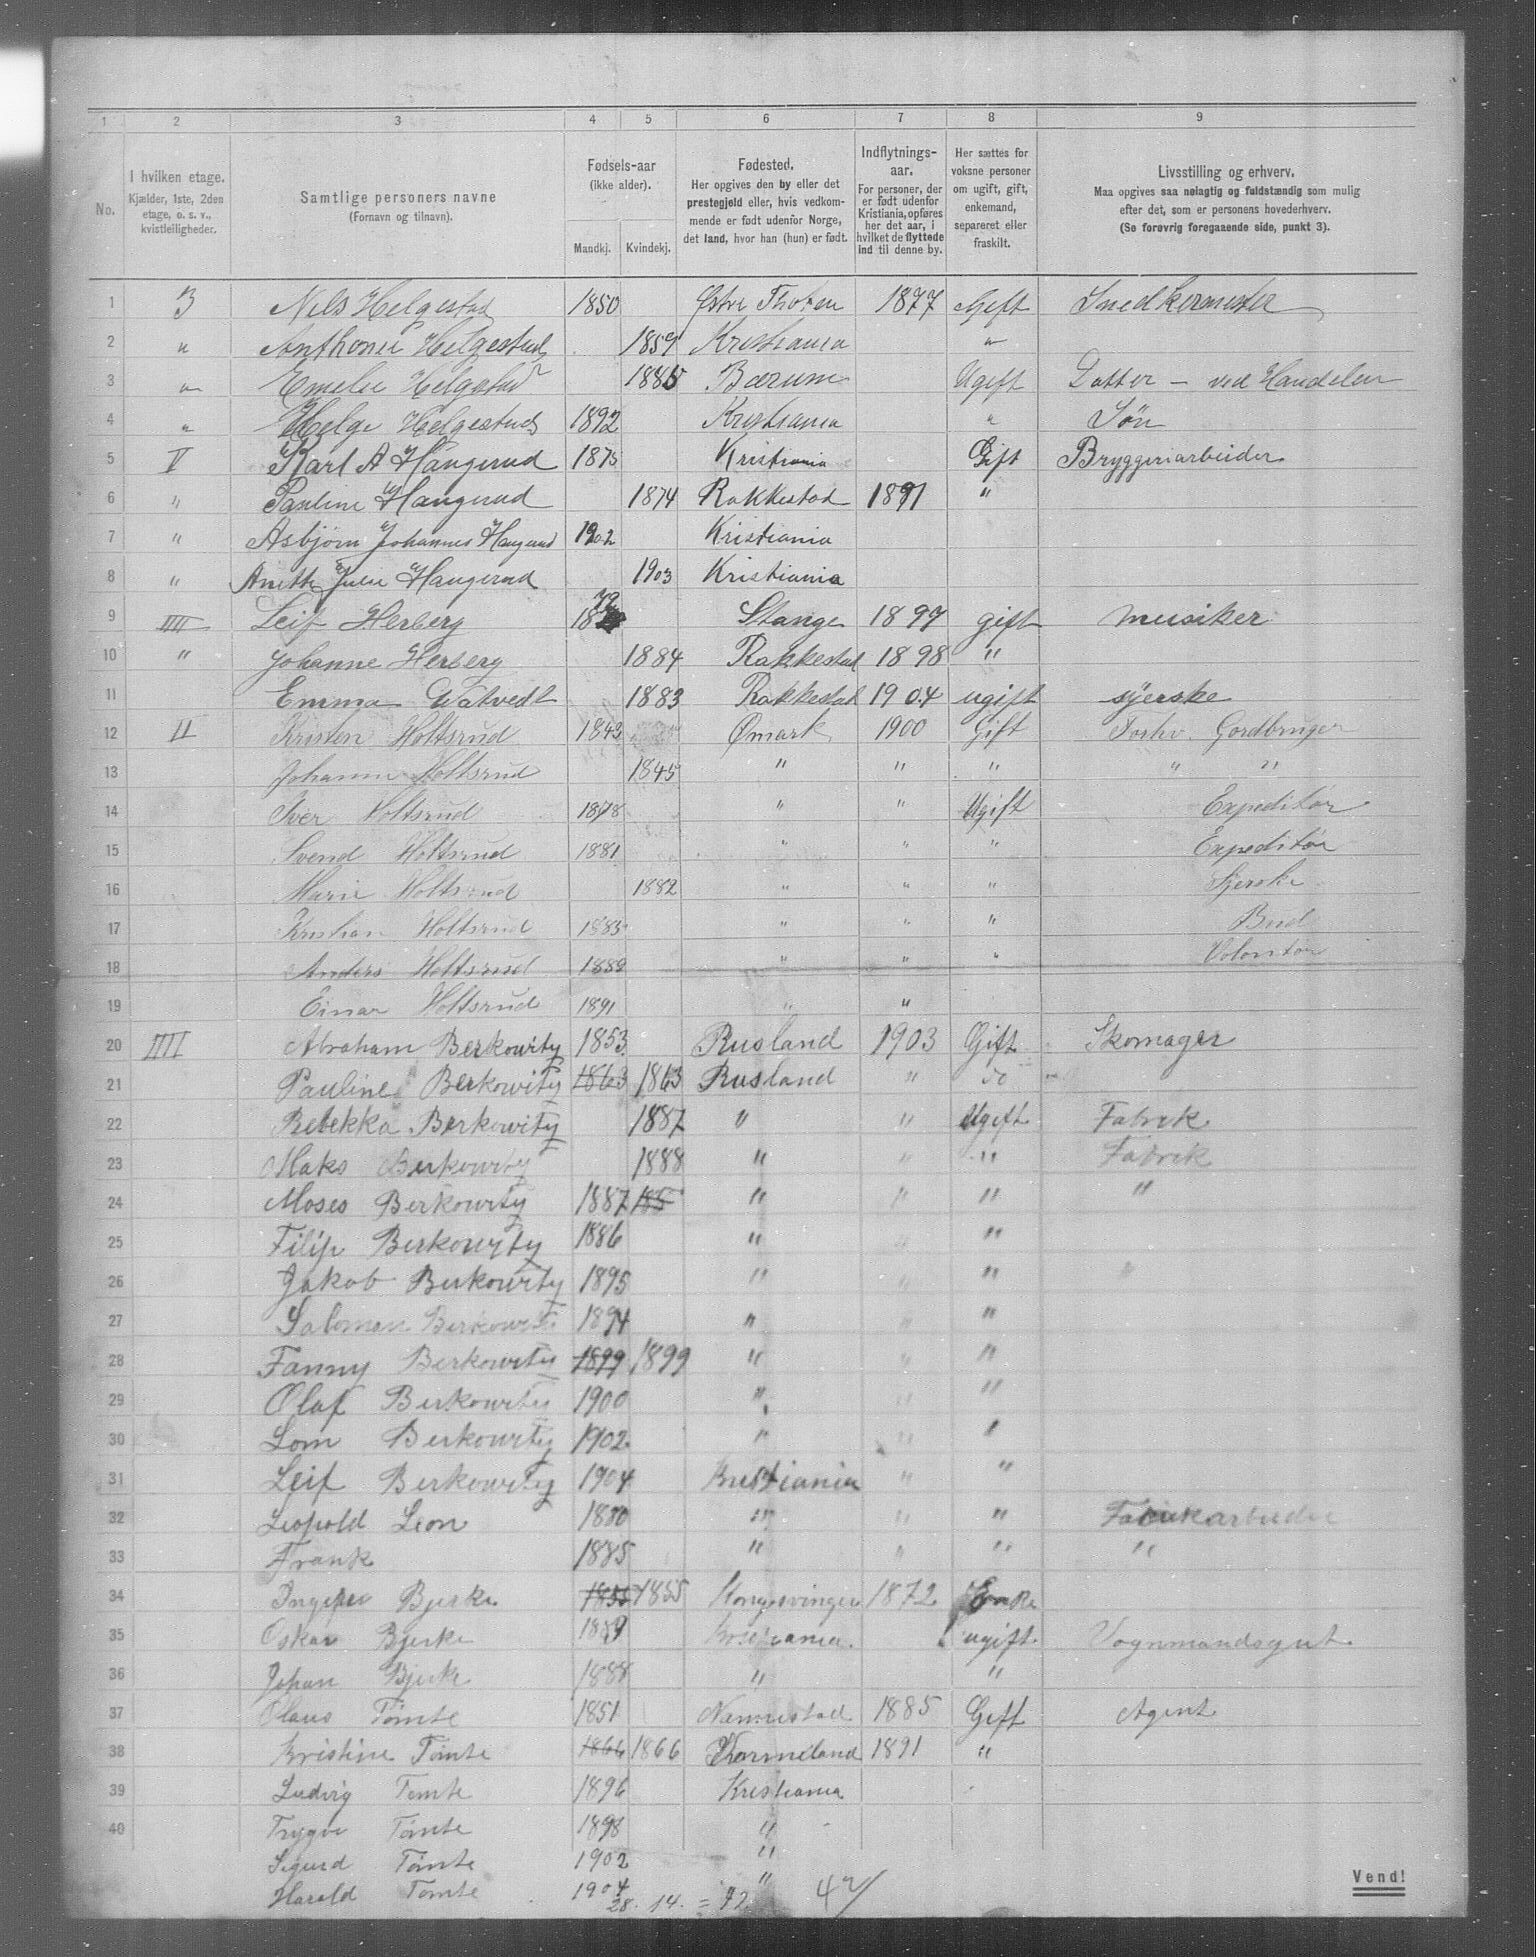 1 2 3 4 5 6 7 8 9
No.
I hvilken etage.
Kjælder, 1ste, 2den
etage, o. s. v.,
kvistleiligheder.
Samtlige personers navne
(Fornavn og tilnavn).
Fødsels-aar
(ikke alder).
Mandkj. Kvindekj.
Fødested.
Her opgives den by eller det
prestegjeld eller, hvis vedkom-
mende er født udenfor Norge,
det land, hvor han (hun) er født.
Indflytnings-
aar.
For personer, der
er født udenfor
Kristiania, opføres
her det aar, i
hvilket de flyttede
ind til denne by.
Her sættes for
voksne personer
om ugift, gift,
enkemand,
separeret eller
fraskilt.
Livsstilling og erhverv.
Maa opgives saa nøiagtig og fuldstændig som mulig
efter det, som er personens hovederhverv.
(Se forøvrig foregaaende side, punkt 3).
1 Nils Helgestad 1850 Østre Thoten 1877 Gift Snedkermester
2 " Anthonie Helgestad 1859 Kristiania "
3 " Emelie Helgestad 1885 Bærum Ugift Datter - ved Handelen
4 " Helge Helgestad 1892 Kristiania " Søn
5 V Karl A Haugerud 1875 Kristiania Gift Bryggeriarbeider
6 " Pauline Haugerud 1874 Rakkestad 1891 "
7 " Asbjørn Johannes Haugerud 1902 Kristiania
8 " Anette Julie Haugerud 1903 Kristiania
9 IIII Leif Herberg 1872 Stange 1897 gift musiker
10 " Johanne Herberg 1884 Rakkestad 1898 "
11 Emma Watvedt 1883 Rakkestad 1904 ugift syerske
12 II Kristen Holtsrud 1843 Ømark 1900 Gift Forhv. Gordbruger
13 Johanne Holtsrud 1845 " " " " "
14 Iver Holtsrud 1878 " " Ugift Expeditør
15 Svend Holtsrud 1881 " " " Expeditør
16 Marie Holtsrud 1882 " " " Syerske
17 Kristian Holtsrud 1883 " " " Bud
18 Anders Holtsrud 1889 " " " Volontør
19 Einar Holtsrud 1891 " "
20 IIII Abraham Berkowitz 1853 Rusland 1903 Gift Skomager
21 Pauline Berkowitz 1863 1863 Rusland " do
22 Rebekka Berkowitz 1887 " " Ugift Fabrik
23 Maks Berkowitz 1888 " " " Fabrik
24 Moses Berkowitz 1887 185 " " " "
25 Filip Berkowitz 1886 " " "
26 Jakob Berkowitz 1895 " " " "
27 Saloman Berkowitz 1894 " " "
28 Fanny Berkowitz 1899 1899 " " "
29 Olaf Berkowitz 1900 " " "
30 Lom Berkowitz 1902 " " "
31 Leif Berkowitz 1904 Kristiania " "
32 Leopold Leon 1880 " " " Fabrikarbeider
33 Frank 1885 " " " "
34 Bjerke 1855 1855 Kongsvinger 1872 Enke
35 Oskar Bjerke Kristiania. ugift. Vognmandsgut
36 Johan Bjerke 1888 " "
37 Olaus Tømte 1851 Nannestad 1885 Gift Agent
38 Kristine Tømte 1866 1866 Værmeland 1891 "
39 Ludvig Tømte 1896 Kristiania
40 Trygve Tømte 1898 "
Sigurd Tømte 1902 "
Harald Tømte 1904 "
28. 14. = 42 42/
Vend!